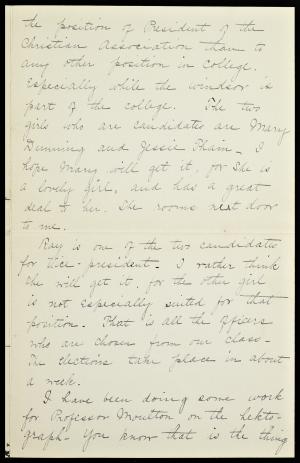 the position of President of the
Christian Association than to
any other position in college.
Especially while the windsor is
part of the college. The two
girls who are candidates are Mary
Demming and Jessie Pham. I
hope Mary will get it, for she is
a lovely girl, and has a great
deal to her. She rooms next door
to me.
Ray is one of the two candidates
for Vice-president. I rather think
she will get it, for the other girl
is not especially suited for that
position. That is all the officers
who are chosen from our class.
The elections take place in about
a week.
I have been doing some work
for Professor Moulton on the hekto-
graph. You know that is the thing